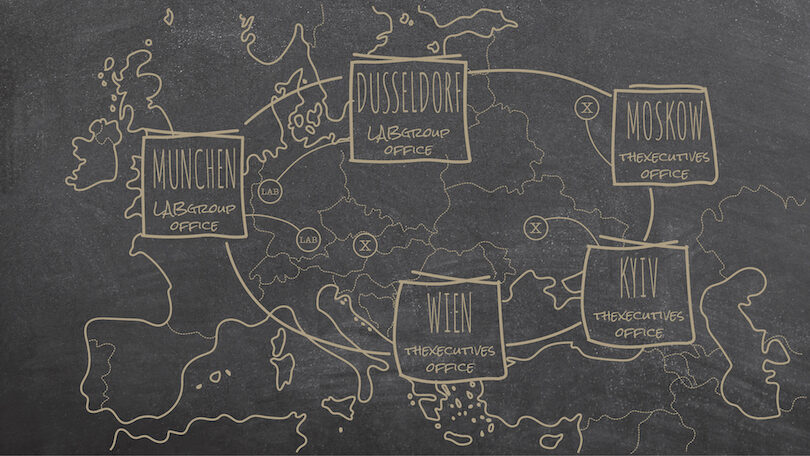 DUSSELDORF
LABGROUP
OFFICE
MOSKOW
THEXECUTIVES
OFFICE
X
MUNCHEN
LABGROUP
OFFICE
LAB
LAB
X
X
KYIV
THEXECUTIVES
OFFICE
WIEN
THEXECUTIVES
OFFICE